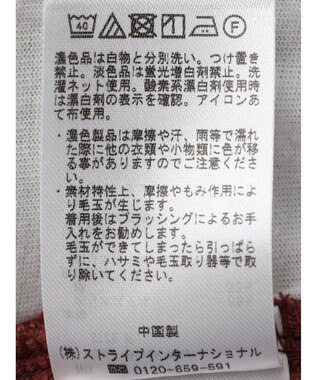 40
F
濃色品は白物と分別洗い。つけ置き
禁止。淡色品は蛍光増白剤禁止。洗
濯ネット使用。酸素系漂白剤使用時
は漂白剤の表示を確認。アイロンあ
て布使用。
・濃色製品は摩擦や汗、雨等で濡れ
た際に他の衣類や小物類に色が移
る事がありますのでご注意くださ
い。
・素材特性上、摩擦やもみ作用によ
り毛玉が生じます。
着用後はブラッシングによるお手
入れをお勧めします。
毛玉ができてしまったら引っぱら
ずに、ハサミや毛玉取り器等で取
り除いてください。
中国製
(株)ストライプインターナショナル
0120-659-591